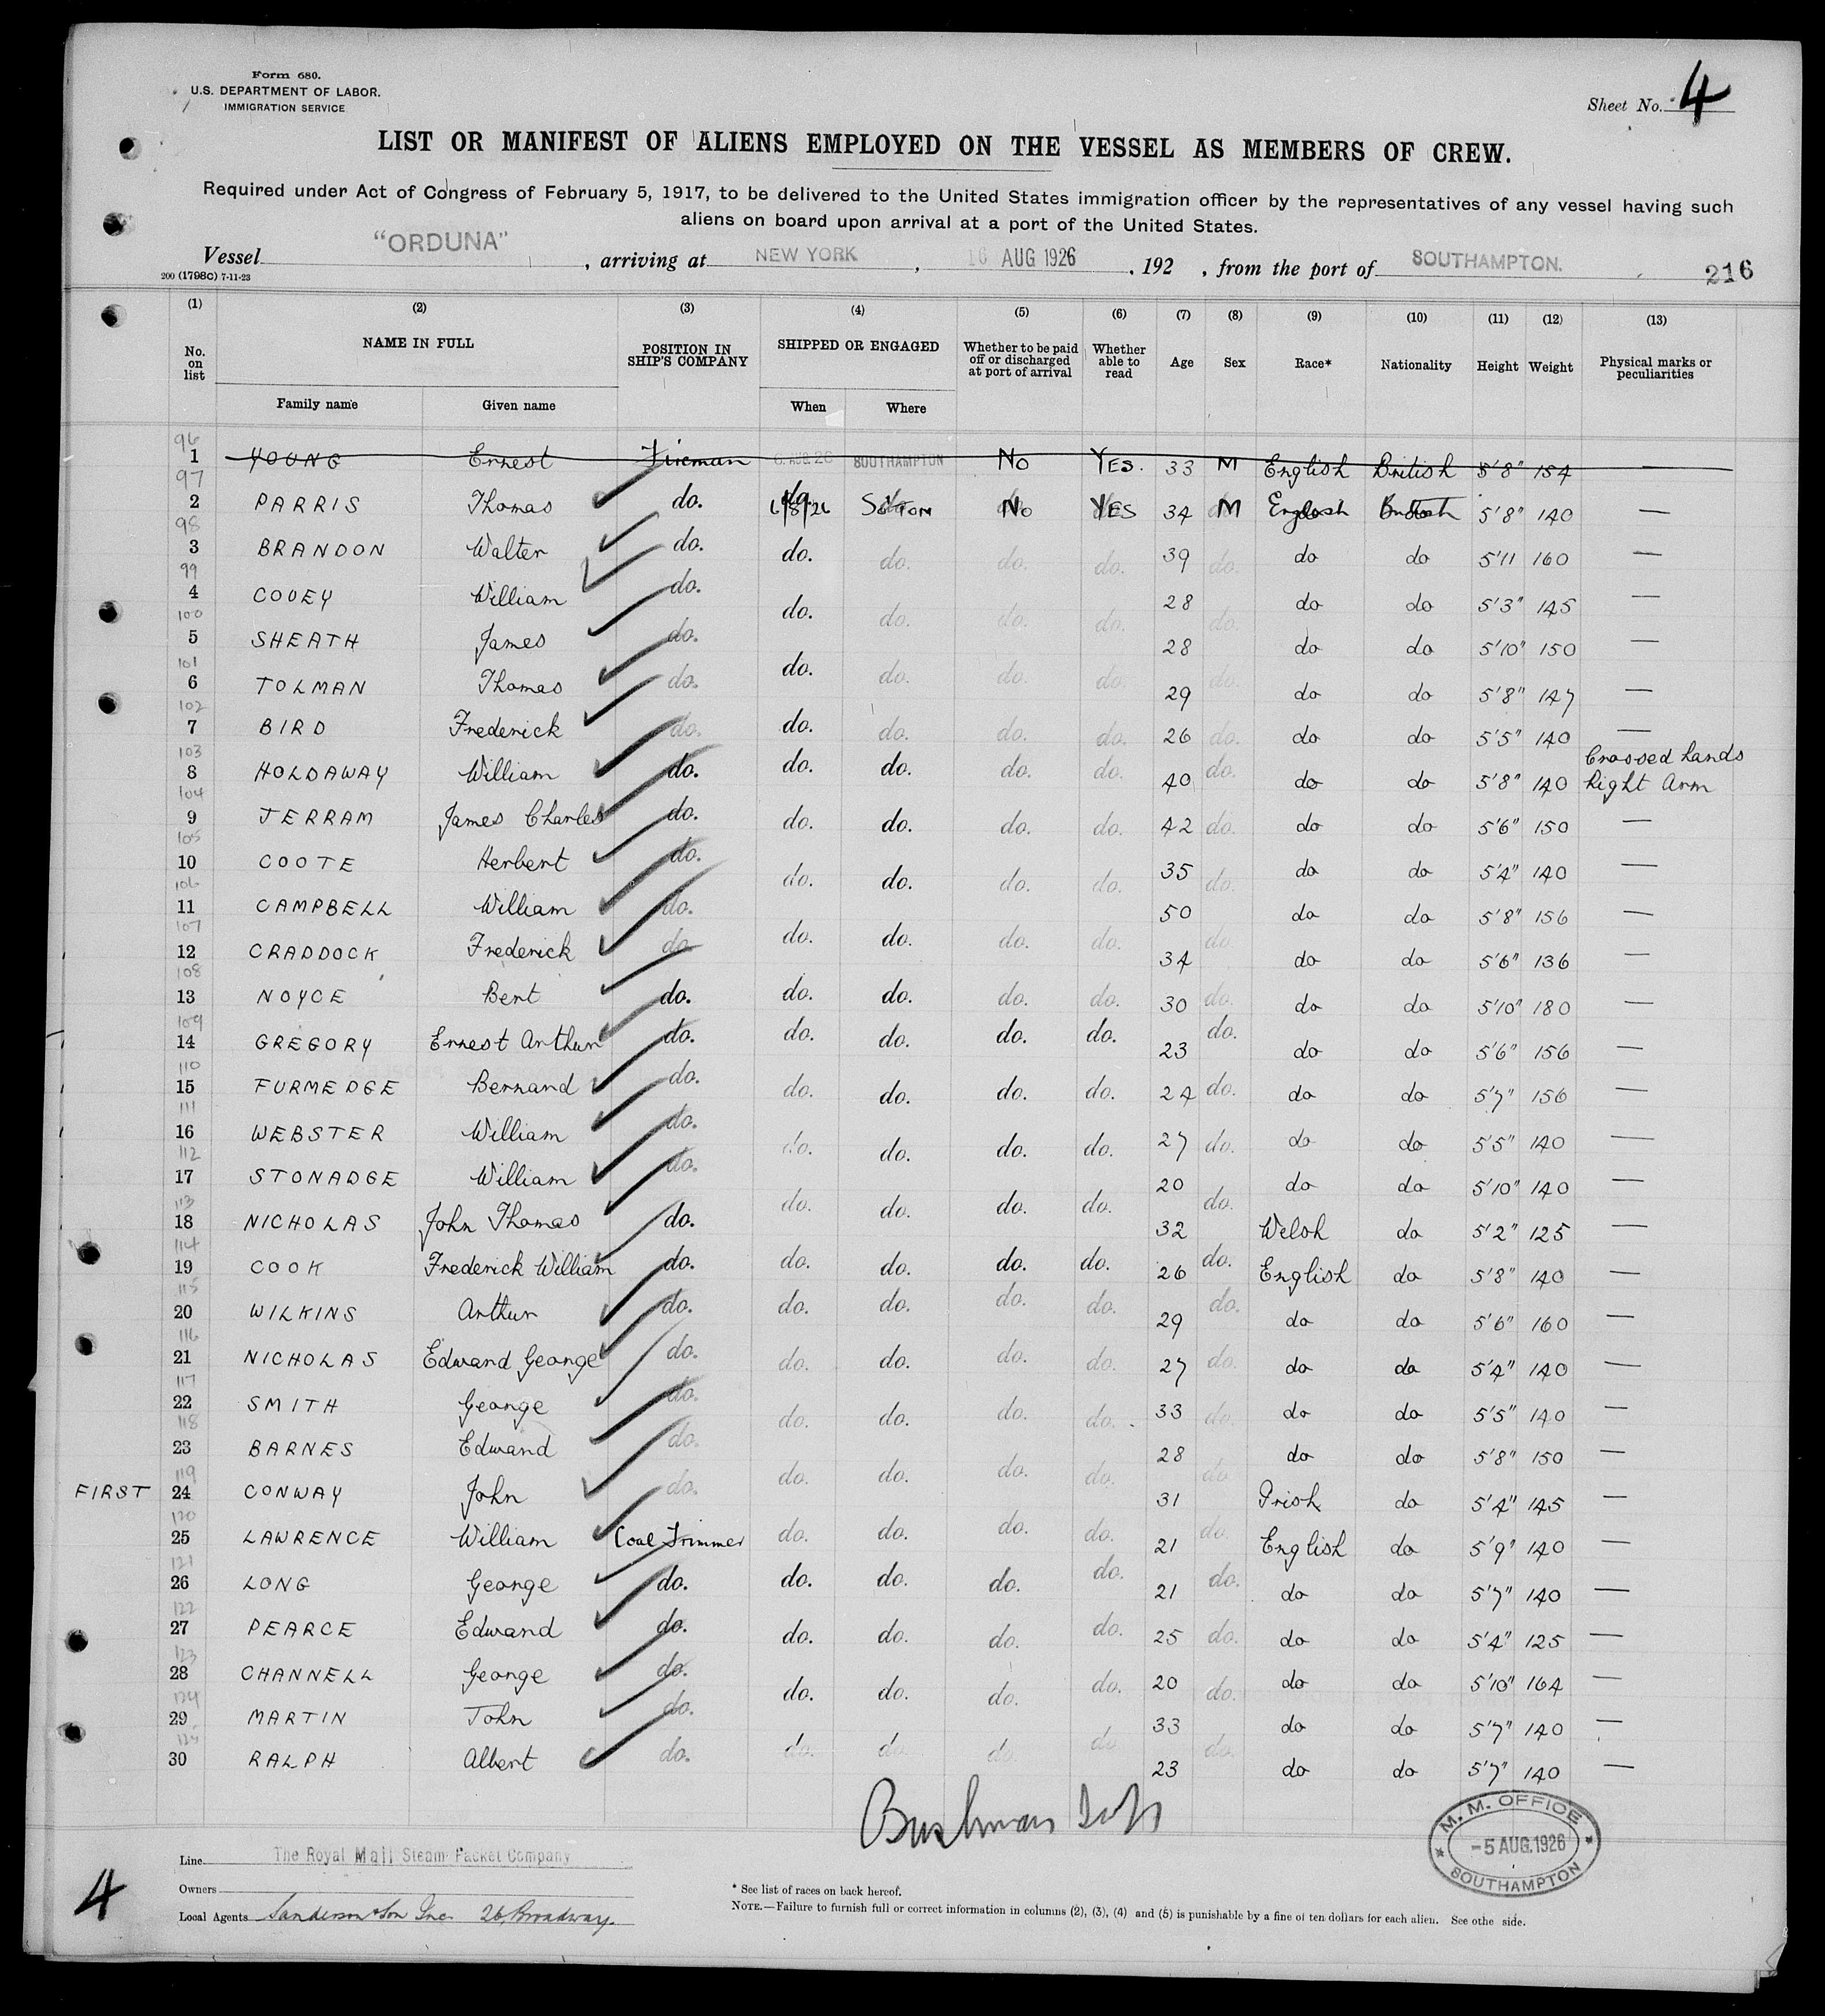 Form 680.
U.S. DEPARTMENT OF LABOR.
IMMIGRATION SERVICE
Sheet No. 4
LIST OR MANIFEST OF ALIENS EMPLOYED ON THE VESSEL AS MEMBERS OF CREW.
Required under Act of Congress of February 5, 1917, to be delivered to the United States immigration officer by the representatives of any vessel having such
aliens on board upon arrival at a port of the United States.
Vessel "ORDUNA", arriving at NEW YORK, 16 AUG 1926, 192 , from the port of SOUTHAMPTON.
200 (1798C) 7-11-23
216
(1) (2) (3) (4) (5) (6) (7) (8) (9) (10) (11) (12) (13)
No. on list NAME IN FULL POSITION IN SHIP'S COMPANY SHIPPED OR ENGAGED Whether to be paid off or discharged at port of arrival Whether able to read Age Sex Race* Nationality Height Weight Physical marks or peculiarities
Family name Given name When Where
96
1 YOUNG Ernest Fireman 6. AUG. 26 SOUTHAMPTON No YES. 33 M English British 5'8" 154 —
97
2 PARRIS Thomas do. 6/8/26 So'TON No YES 34 M English British 5'8" 140 —
98
3 BRANDON Walter do. do. do. do. do. 39 do. do do 5'11 160 —
99
4 COVEY William do. do. do. do. do. 28 do. do do 5'3" 145 —
100
5 SHEATH James do. 28 do do 5'10" 150 —
101
6 TOLMAN Thomas do. do. do. do. do. 29 do. do do 5'8" 147 —
102
7 BIRD Frederick do. do. do. do. do. 26 do. do do 5'5" 140 —
103
8 HOLDAWAY William do. do. do. do. do. 40 do. do do 5'8" 140 Crossed hands Right Arm
104
9 JERRAM James Charles do. do. do. do. do. 42 do. do do 5'6" 150 —
105
10 COOTE Herbert do. do. do. do. do. 35 do. do do 5'4" 140 —
106
11 CAMPBELL William do. 50 do do 5'8" 156 —
107
12 CRADDOCK Frederick do do. do. do. do. 34 do do do 5'6" 136 —
108
13 NOYCE Bert do. do. do. do. do. 30 do. do do 5'10" 180 —
109
14 GREGORY Ernest Arthur do. do. do. do. do. 23 do. do do 5'6" 156 —
110
15 FURMEDGE Bernard do. do. do. do. do. 24 do. do do 5'7" 156 —
111
16 WEBSTER William do. do. do. do. do. 27 do. do do 5'5" 140 —
112
17 STONADGE William do. 20 do do 5'10" 140 —
113
18 NICHOLAS John Thomas do. do. do. do. do. 32 do. Welsh do 5'2" 125 —
114
19 COOK Frederick William do. do. do. do. do. 26 do. English do 5'8" 140 —
115
20 WILKINS Arthur do. do. do. do. do. 29 do. do do 5'6" 160 —
116
21 NICHOLAS Edward George do. do. do. do. do. 27 do. do do 5'4" 140 —
117
22 SMITH George do. do. do. do. do. 33 do. do do 5'5" 140 —
118
23 BARNES Edward do. 28 do do 5'8" 150 —
119
FIRST 24 CONWAY John do. do. do. do. do. 31 do Irish do 5'4" 145 —
120
25 LAWRENCE William Coal Trimmer do. do. do. do. 21 do. English do 5'9" 140 —
121
26 LONG George do. do. do. do. do. 21 do. do do 5'7" 140 —
122
27 PEARCE Edward do. do. do. do. do. 25 do. do do 5'4" 125 —
123
28 CHANNELL George do. do. do. do. do. 20 do. do do 5'10" 164 —
124
29 MARTIN John do. 33 do do 5'7" 140 —
125
30 RALPH Albert do. do. do. do. do. 23 do. do do 5'7" 140 —
M. M. OFFICE
-5 AUG. 1926
SOUTHAMPTON
Line The Royal Mail Steam Packet Company
Owners
Local Agents Sanderson & Son Inc. 26, Broadway.
4
* See list of races on back hereof.
NOTE.—Failure to furnish full or correct information in columns (2), (3), (4) and (5) is punishable by a fine of ten dollars for each alien. See othe side.